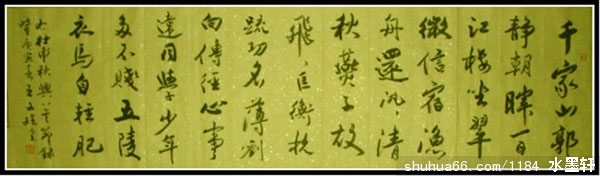 千家山郭
靜朝暉一日
江樓坐翠
微信宿漁
舟還汎〻清
秋燕子故
飛〻匡衡抗
疏功名薄劉
向傳經心事
違同學少年
多不賤五陵
衣馬自輕肥
杜甫秋興八首節錄
庚寅春王文
shuhua66.com/1184 水墨轩